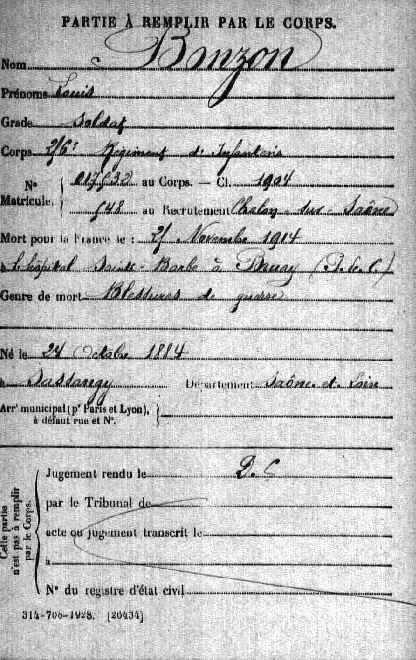 PARTIE À REMPLIR PAR LE CORPS.
Nom
Prénoms Louis
Grade Soldat
Corps Régiment d'Infanterie
N° Matricule. au Corps. — Cl. 1904
au Recrutement Chalon-sur-Saône
Mort pour la France le : Novembre 1914
à l'hôpital Sainte-Barbe à
Genre de mort Blessures de guerre
Né le 24 Octobre 1884
à Département Saône-et-Loire
Arr' municipal (p' Paris et Lyon),
à défaut rue et N°.
Cette partie
n'est pas à remplir
par le Corps.
Jugement rendu le
par le Tribunal de
acte ou jugement transcrit le
à
N° du registre d'état civil
314-708-1928. [20434]